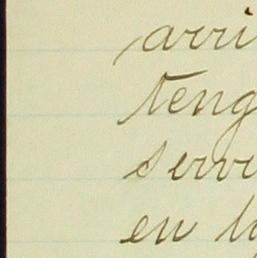 arri
teng
servi
en l